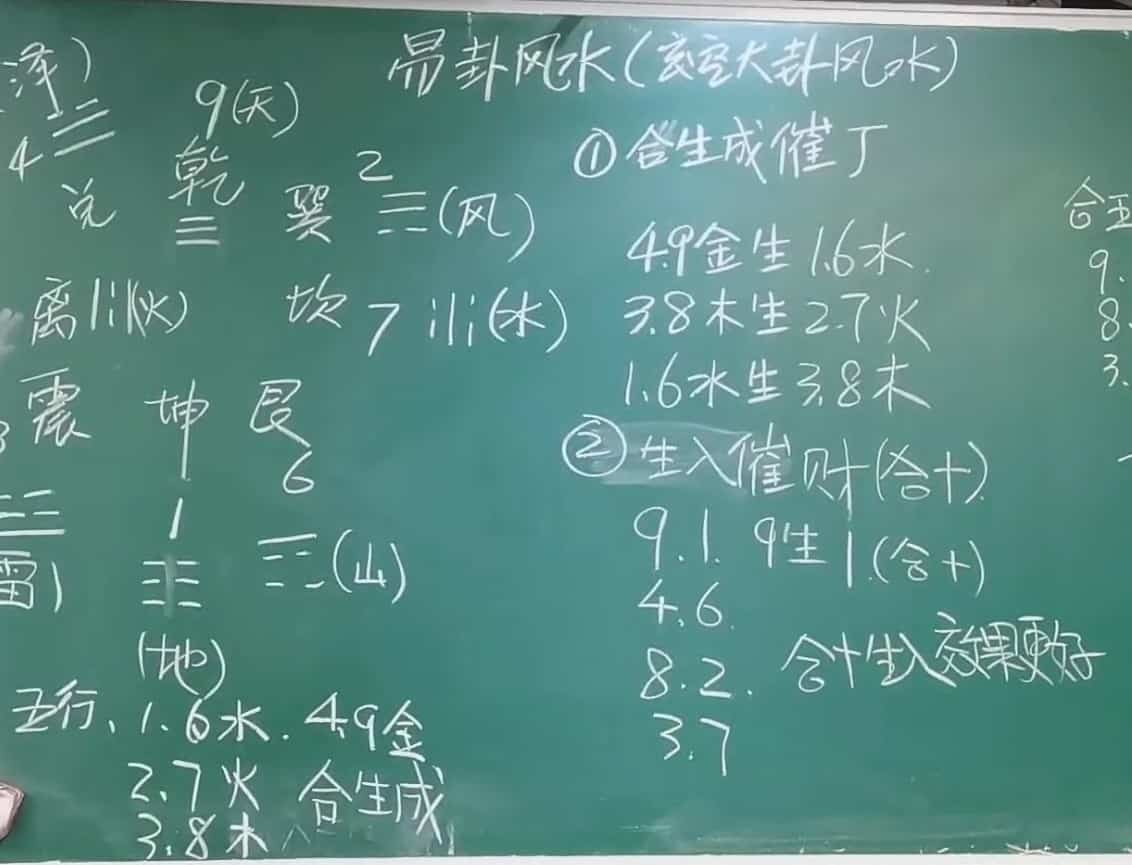 易卦风水(玄空大卦风水)
泽)
4 ☱
兑
9(天)
乾
☰
2
巽 ☴(风)
离 ☲(火)
坎 7 ☵(水)
3 震
☳
雷)
坤
1
☷
(地)
艮
6
☶(山)
五行、1.6水. 4.9金
2.7火 合生成
3.8木
①合生成催丁
4.9金生1.6水.
3.8木生2.7火
1.6水生3.8木
②生入催财(合十)
9.1. 9生1.(合十)
4.6.
8.2. 合十生入效果更好
3.7
合五
9.
8.
3.